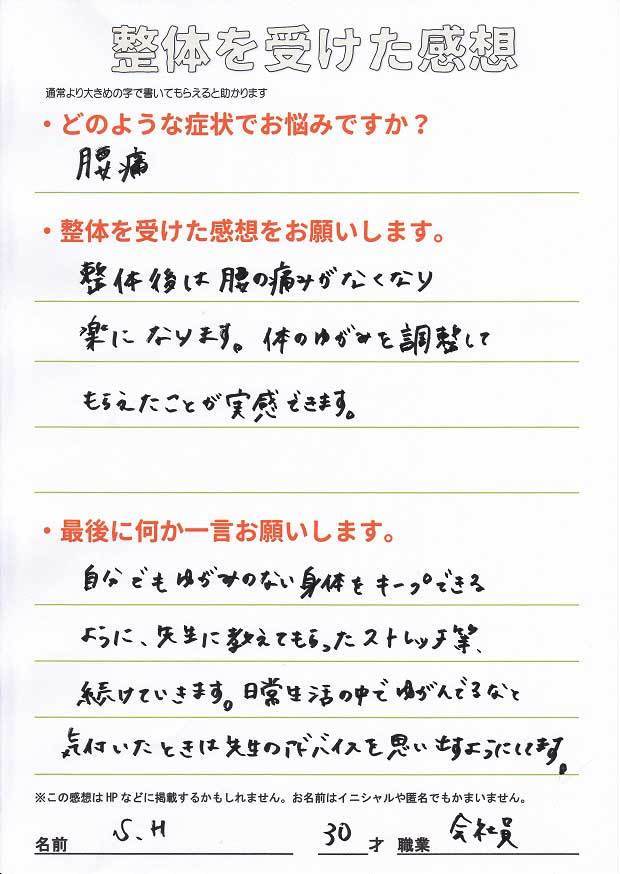 整体を受けた感想
通常より大きめの字で書いてもらえると助かります
・どのような症状でお悩みですか？
腰痛
・整体を受けた感想をお願いします。
整体後は腰の痛みがなくなり
楽になります。体のゆがみを調整して
もらえたことが実感できます。
・最後に何か一言お願いします。
自分でもゆがみのない身体をキープできる
ように、先生に教えてもらったストレッチ等、
続けていきます。日常生活の中でゆがんでるなと
気付いたときは先生のアドバイスを思い出すようにしてます。
※この感想はHPなどに掲載するかもしれません。お名前はイニシャルや匿名でもかまいません。
名前 S.H 30才 職業 会社員